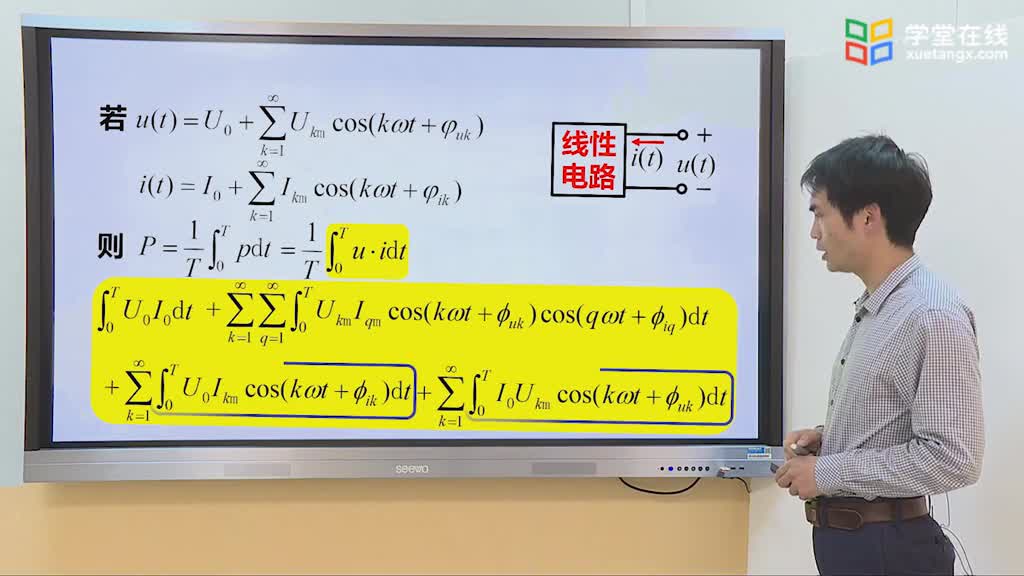 学堂在线
xuetangx.com
若 u(t) = U₀ + ∑_{k=1}^{∞} U_{km} cos(kωt + φ_{uk})
i(t) = I₀ + ∑_{k=1}^{∞} I_{km} cos(kωt + φ_{ik})
线性
电路
i(t)
+
u(t)
−
则 P = 1/T ∫₀ᵀ pdt = 1/T ∫₀ᵀ u·idt
∫₀ᵀ U₀I₀dt + ∑_{k=1}^{∞} ∑_{q=1}^{∞} ∫₀ᵀ U_{km}I_{qm} cos(kωt + ϕ_{uk})cos(qωt + ϕ_{iq})dt
+ ∑_{k=1}^{∞} ∫₀ᵀ U₀I_{km} cos(kωt + ϕ_{ik})dt + ∑_{k=1}^{∞} ∫₀ᵀ I₀U_{km} cos(kωt + ϕ_{uk})dt
seewo